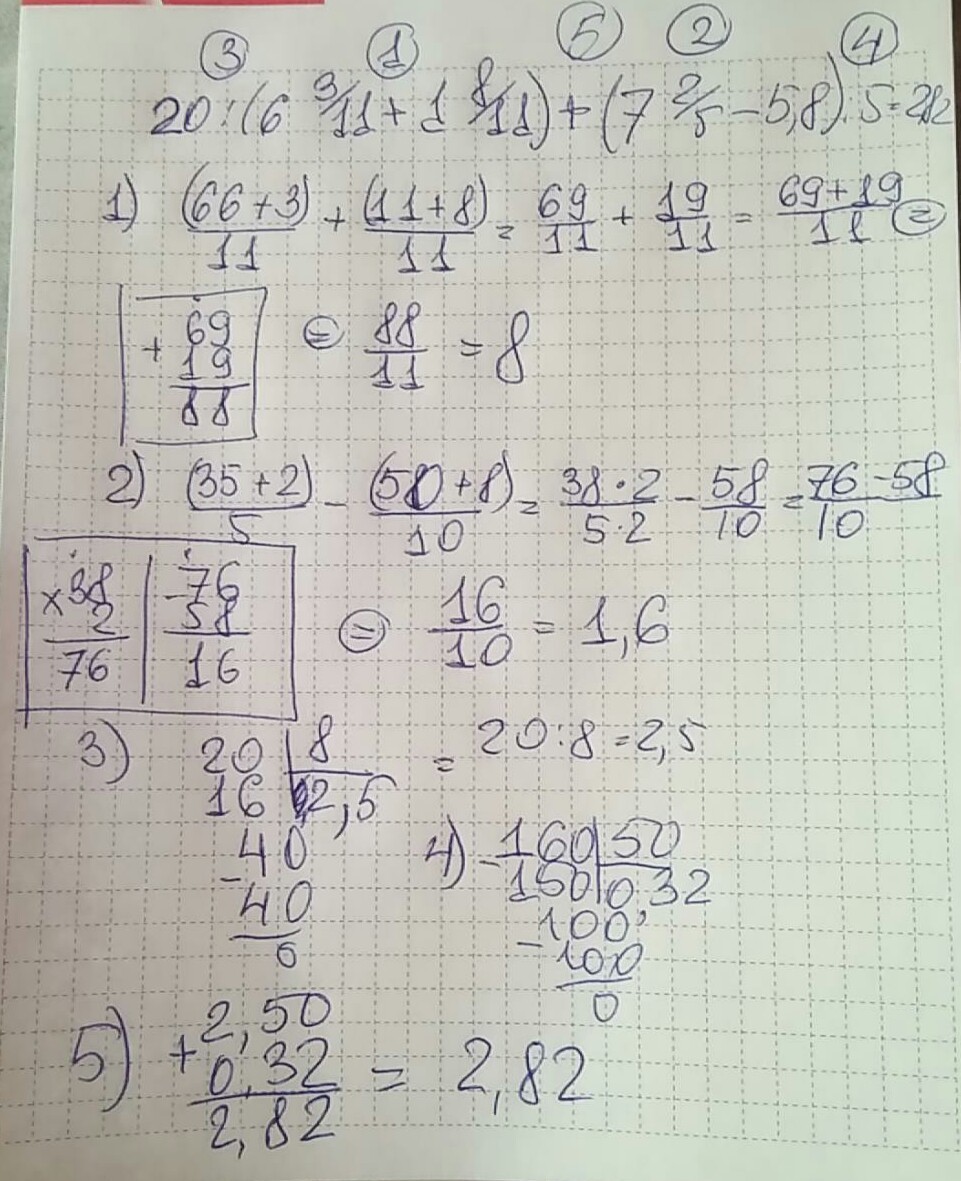 ③ ① ⑤ ② ④
20:(6 3/11+1 8/11)+(7 2/5-5,8):5=2,82
1) (66+3)/11 + (11+8)/11 = 69/11 + 19/11 = (69+19)/11 =
+ 69
19
88
= 88/11 = 8
2) (35+2)/5 - (50+8)/10 = 38·2/5·2 - 58/10 = 76-58/10
×38
2
76
-76
58
16
= 16/10 = 1,6
3) 20 | 8
16 | 2,5
-40
40
0
= 20:8=2,5
4) -160 | 50
150 | 0,32
-100
100
0
5) + 2,50
0,32
2,82
= 2,82